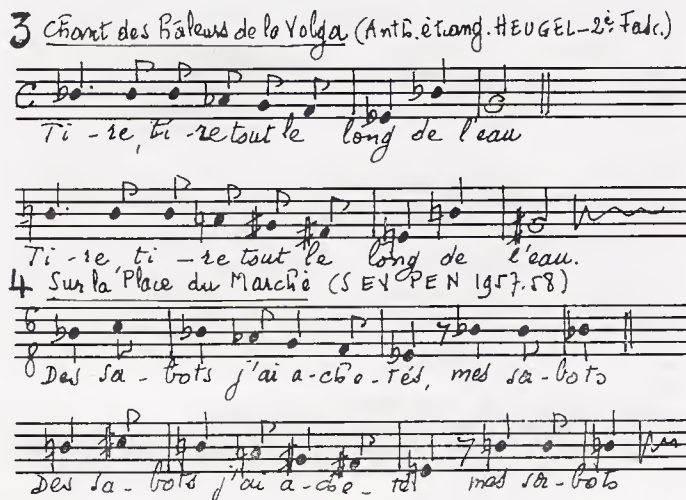 3 Chant des Hâleurs de la Volga (Anth. étrang. HEUGEL - 2è: Fasc.)
Ti - re, ti - re tout le long de l'eau
Ti - re ti - re tout le long de l'eau.
4 Sur la Place du Marché (SEVPEN 1957.58)
6 8
Des sa - bots j'ai a - che - tés, mes sa - bots
Des sa - bots j'ai a - che - tés mes sa - bots